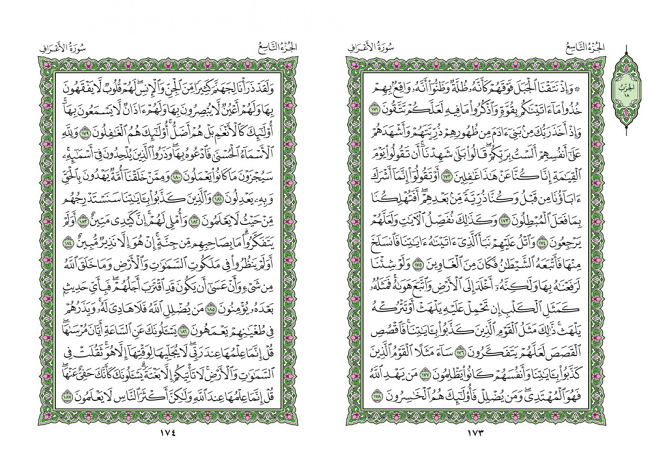 الجزء التاسع
سورة الأعراف
الحزب
١٨
۞ وَإِذْ نَتَقْنَا ٱلْجَبَلَ فَوْقَهُمْ كَأَنَّهُۥ ظُلَّةٌ وَظَنُّوٓا۟ أَنَّهُۥ وَاقِعٌۢ بِهِمْ
خُذُوا۟ مَآ ءَاتَيْنَٰكُم بِقُوَّةٍ وَٱذْكُرُوا۟ مَا فِيهِ لَعَلَّكُمْ تَتَّقُونَ ١٧١
وَإِذْ أَخَذَ رَبُّكَ مِنۢ بَنِىٓ ءَادَمَ مِن ظُهُورِهِمْ ذُرِّيَّتَهُمْ وَأَشْهَدَهُمْ
عَلَىٰٓ أَنفُسِهِمْ أَلَسْتُ بِرَبِّكُمْ ۖ قَالُوا۟ بَلَىٰ ۛ شَهِدْنَآ ۛ أَن تَقُولُوا۟ يَوْمَ
ٱلْقِيَٰمَةِ إِنَّا كُنَّا عَنْ هَٰذَا غَٰفِلِينَ ١٧٢ أَوْ تَقُولُوٓا۟ إِنَّمَآ أَشْرَكَ
ءَابَآؤُنَا مِن قَبْلُ وَكُنَّا ذُرِّيَّةً مِّنۢ بَعْدِهِمْ ۖ أَفَتُهْلِكُنَا
بِمَا فَعَلَ ٱلْمُبْطِلُونَ ١٧٣ وَكَذَٰلِكَ نُفَصِّلُ ٱلْـَٔايَٰتِ وَلَعَلَّهُمْ
يَرْجِعُونَ ١٧٤ وَٱتْلُ عَلَيْهِمْ نَبَأَ ٱلَّذِىٓ ءَاتَيْنَٰهُ ءَايَٰتِنَا فَٱنسَلَخَ
مِنْهَا فَأَتْبَعَهُ ٱلشَّيْطَٰنُ فَكَانَ مِنَ ٱلْغَاوِينَ ١٧٥ وَلَوْ شِئْنَا
لَرَفَعْنَٰهُ بِهَا وَلَٰكِنَّهُۥٓ أَخْلَدَ إِلَى ٱلْأَرْضِ وَٱتَّبَعَ هَوَىٰهُ ۚ فَمَثَلُهُۥ
كَمَثَلِ ٱلْكَلْبِ إِن تَحْمِلْ عَلَيْهِ يَلْهَثْ أَوْ تَتْرُكْهُ
يَلْهَث ۚ ذَّٰلِكَ مَثَلُ ٱلْقَوْمِ ٱلَّذِينَ كَذَّبُوا۟ بِـَٔايَٰتِنَا ۚ فَٱقْصُصِ
ٱلْقَصَصَ لَعَلَّهُمْ يَتَفَكَّرُونَ ١٧٦ سَآءَ مَثَلًا ٱلْقَوْمُ ٱلَّذِينَ
كَذَّبُوا۟ بِـَٔايَٰتِنَا وَأَنفُسَهُمْ كَانُوا۟ يَظْلِمُونَ ١٧٧ مَن يَهْدِ ٱللَّهُ
فَهُوَ ٱلْمُهْتَدِى ۖ وَمَن يُضْلِلْ فَأُو۟لَٰٓئِكَ هُمُ ٱلْخَٰسِرُونَ ١٧٨
١٧٣
الجزء التاسع
سورة الأعراف
وَلَقَدْ ذَرَأْنَا لِجَهَنَّمَ كَثِيرًا مِّنَ ٱلْجِنِّ وَٱلْإِنسِ ۖ لَهُمْ قُلُوبٌ لَّا يَفْقَهُونَ
بِهَا وَلَهُمْ أَعْيُنٌ لَّا يُبْصِرُونَ بِهَا وَلَهُمْ ءَاذَانٌ لَّا يَسْمَعُونَ بِهَآ ۚ
أُو۟لَٰٓئِكَ كَٱلْأَنْعَٰمِ بَلْ هُمْ أَضَلُّ ۚ أُو۟لَٰٓئِكَ هُمُ ٱلْغَٰفِلُونَ ١٧٩ وَلِلَّهِ
ٱلْأَسْمَآءُ ٱلْحُسْنَىٰ فَٱدْعُوهُ بِهَا ۖ وَذَرُوا۟ ٱلَّذِينَ يُلْحِدُونَ فِىٓ أَسْمَٰٓئِهِۦ ۚ
سَيُجْزَوْنَ مَا كَانُوا۟ يَعْمَلُونَ ١٨٠ وَمِمَّنْ خَلَقْنَآ أُمَّةٌ يَهْدُونَ بِٱلْحَقِّ
وَبِهِۦ يَعْدِلُونَ ١٨١ وَٱلَّذِينَ كَذَّبُوا۟ بِـَٔايَٰتِنَا سَنَسْتَدْرِجُهُم
مِّنْ حَيْثُ لَا يَعْلَمُونَ ١٨٢ وَأُمْلِى لَهُمْ ۚ إِنَّ كَيْدِى مَتِينٌ ١٨٣ أَوَلَمْ
يَتَفَكَّرُوا۟ ۗ مَا بِصَاحِبِهِم مِّن جِنَّةٍ ۚ إِنْ هُوَ إِلَّا نَذِيرٌ مُّبِينٌ ١٨٤
أَوَلَمْ يَنظُرُوا۟ فِى مَلَكُوتِ ٱلسَّمَٰوَٰتِ وَٱلْأَرْضِ وَمَا خَلَقَ ٱللَّهُ
مِن شَىْءٍ وَأَنْ عَسَىٰٓ أَن يَكُونَ قَدِ ٱقْتَرَبَ أَجَلُهُمْ ۖ فَبِأَىِّ حَدِيثٍۭ
بَعْدَهُۥ يُؤْمِنُونَ ١٨٥ مَن يُضْلِلِ ٱللَّهُ فَلَا هَادِىَ لَهُۥ ۚ وَيَذَرُهُمْ
فِى طُغْيَٰنِهِمْ يَعْمَهُونَ ١٨٦ يَسْـَٔلُونَكَ عَنِ ٱلسَّاعَةِ أَيَّانَ مُرْسَىٰهَا ۖ
قُلْ إِنَّمَا عِلْمُهَا عِندَ رَبِّى ۖ لَا يُجَلِّيهَا لِوَقْتِهَآ إِلَّا هُوَ ۚ ثَقُلَتْ فِى
ٱلسَّمَٰوَٰتِ وَٱلْأَرْضِ ۚ لَا تَأْتِيكُمْ إِلَّا بَغْتَةً ۗ يَسْـَٔلُونَكَ كَأَنَّكَ حَفِىٌّ عَنْهَا ۖ
قُلْ إِنَّمَا عِلْمُهَا عِندَ ٱللَّهِ وَلَٰكِنَّ أَكْثَرَ ٱلنَّاسِ لَا يَعْلَمُونَ ١٨٧
١٧٤